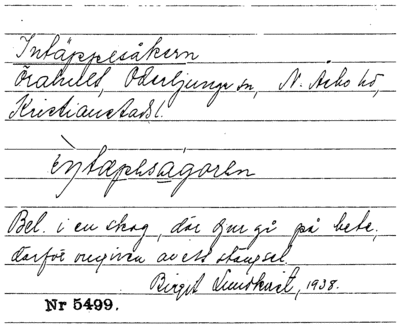 Intäppesåkern
Örahult, Oderljunga sn, N. Åsbo hd,
Kristianstads l.
Bel. i en skog, där djur gå på bete,
därför omgiven av ett stängsel.
Birgit Lundkvist, 1938.
Nr 5499.